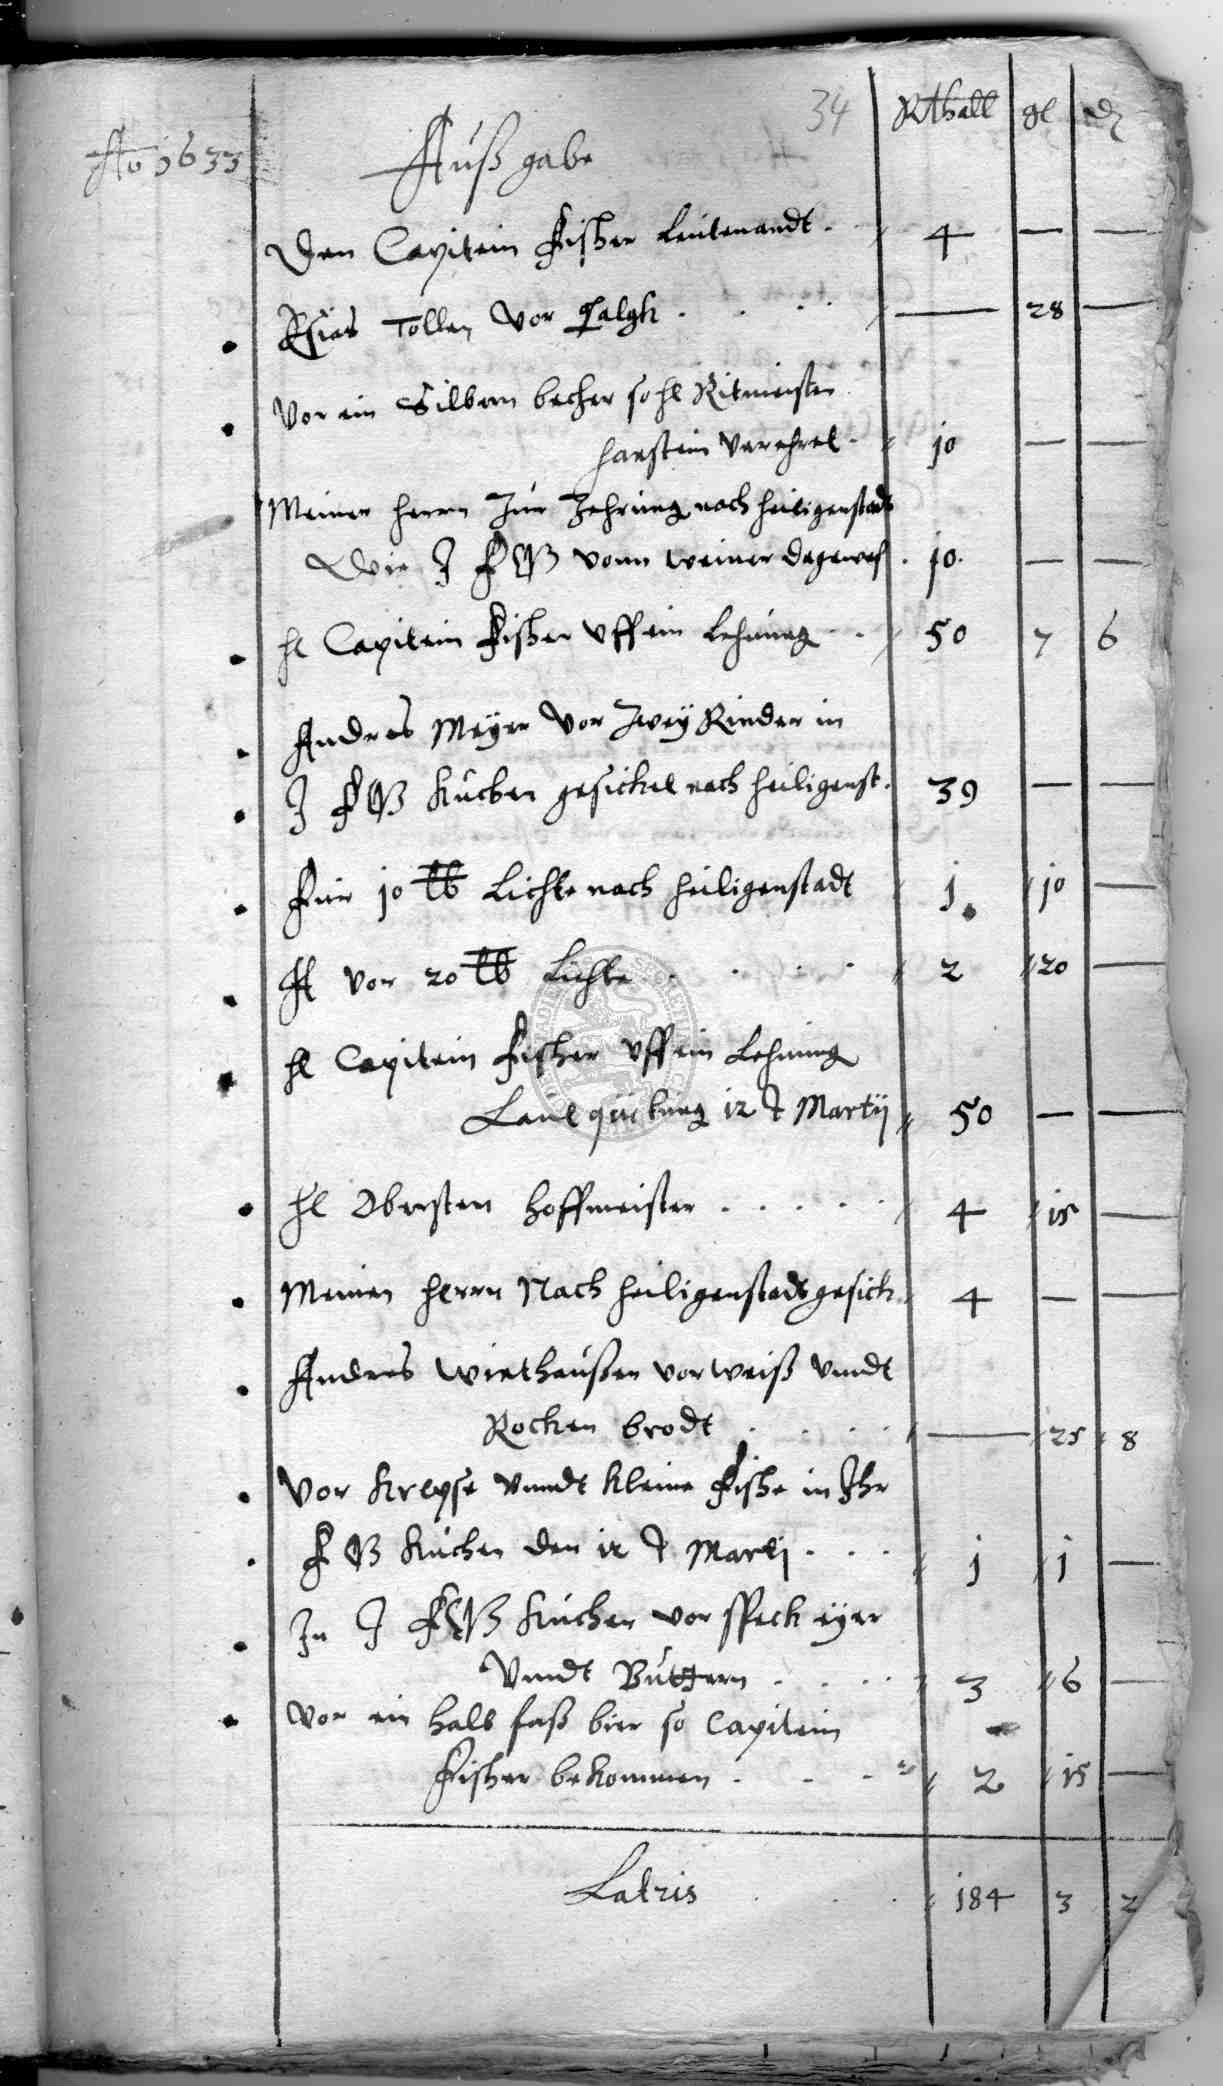 34 Rthall gl ₰
Ao 1633 Außgabe
Den Capitein Fischer Leutenandt . 4 — —
Tollen vor Talgk . . . . — 28 —
Vor ein Silbern becher so hl Ritmeister
Hanstein verehret . 10 — —
Meiner herrn Zur Zehrung nach heiligenstads
Wie J F G vonn weimer dagewes . 10 — —
hl Capitein Fischer Uff ein Lehnung . . 50 7 6
Andres Meÿer Vor Zweÿ Rinder in
J F G Kuchen gesickt nach heiligenst . 39 — —
Für 10 lb Lichte nach heiligenstadt 1 10 —
vor 20 lb Lichte . . . . 2 20 —
hl Capitein Fischer Uff ein Lehnung
Laut quitung 12 t Martij 50 — —
hl Obersten hoffmeister . . . . . 4 15 —
Meinen herrn Nach heiligenstads gesick 4 — —
Andres Wiethaußen vor weiß Unndt
Rocken brodt . . . . — 25 8
Vor Krepse Unndt kleine Fische in Ihr
F G Kuchen den 12 t Martj . . . 1 1 —
In J F G Kuchen vor speck eÿer
Unndt Buttern . . . . 3 6 —
Vor ein halb faß bier so Capitein
Fischer bekommen . . . 2 15 —
Latris . . . 184 3 2